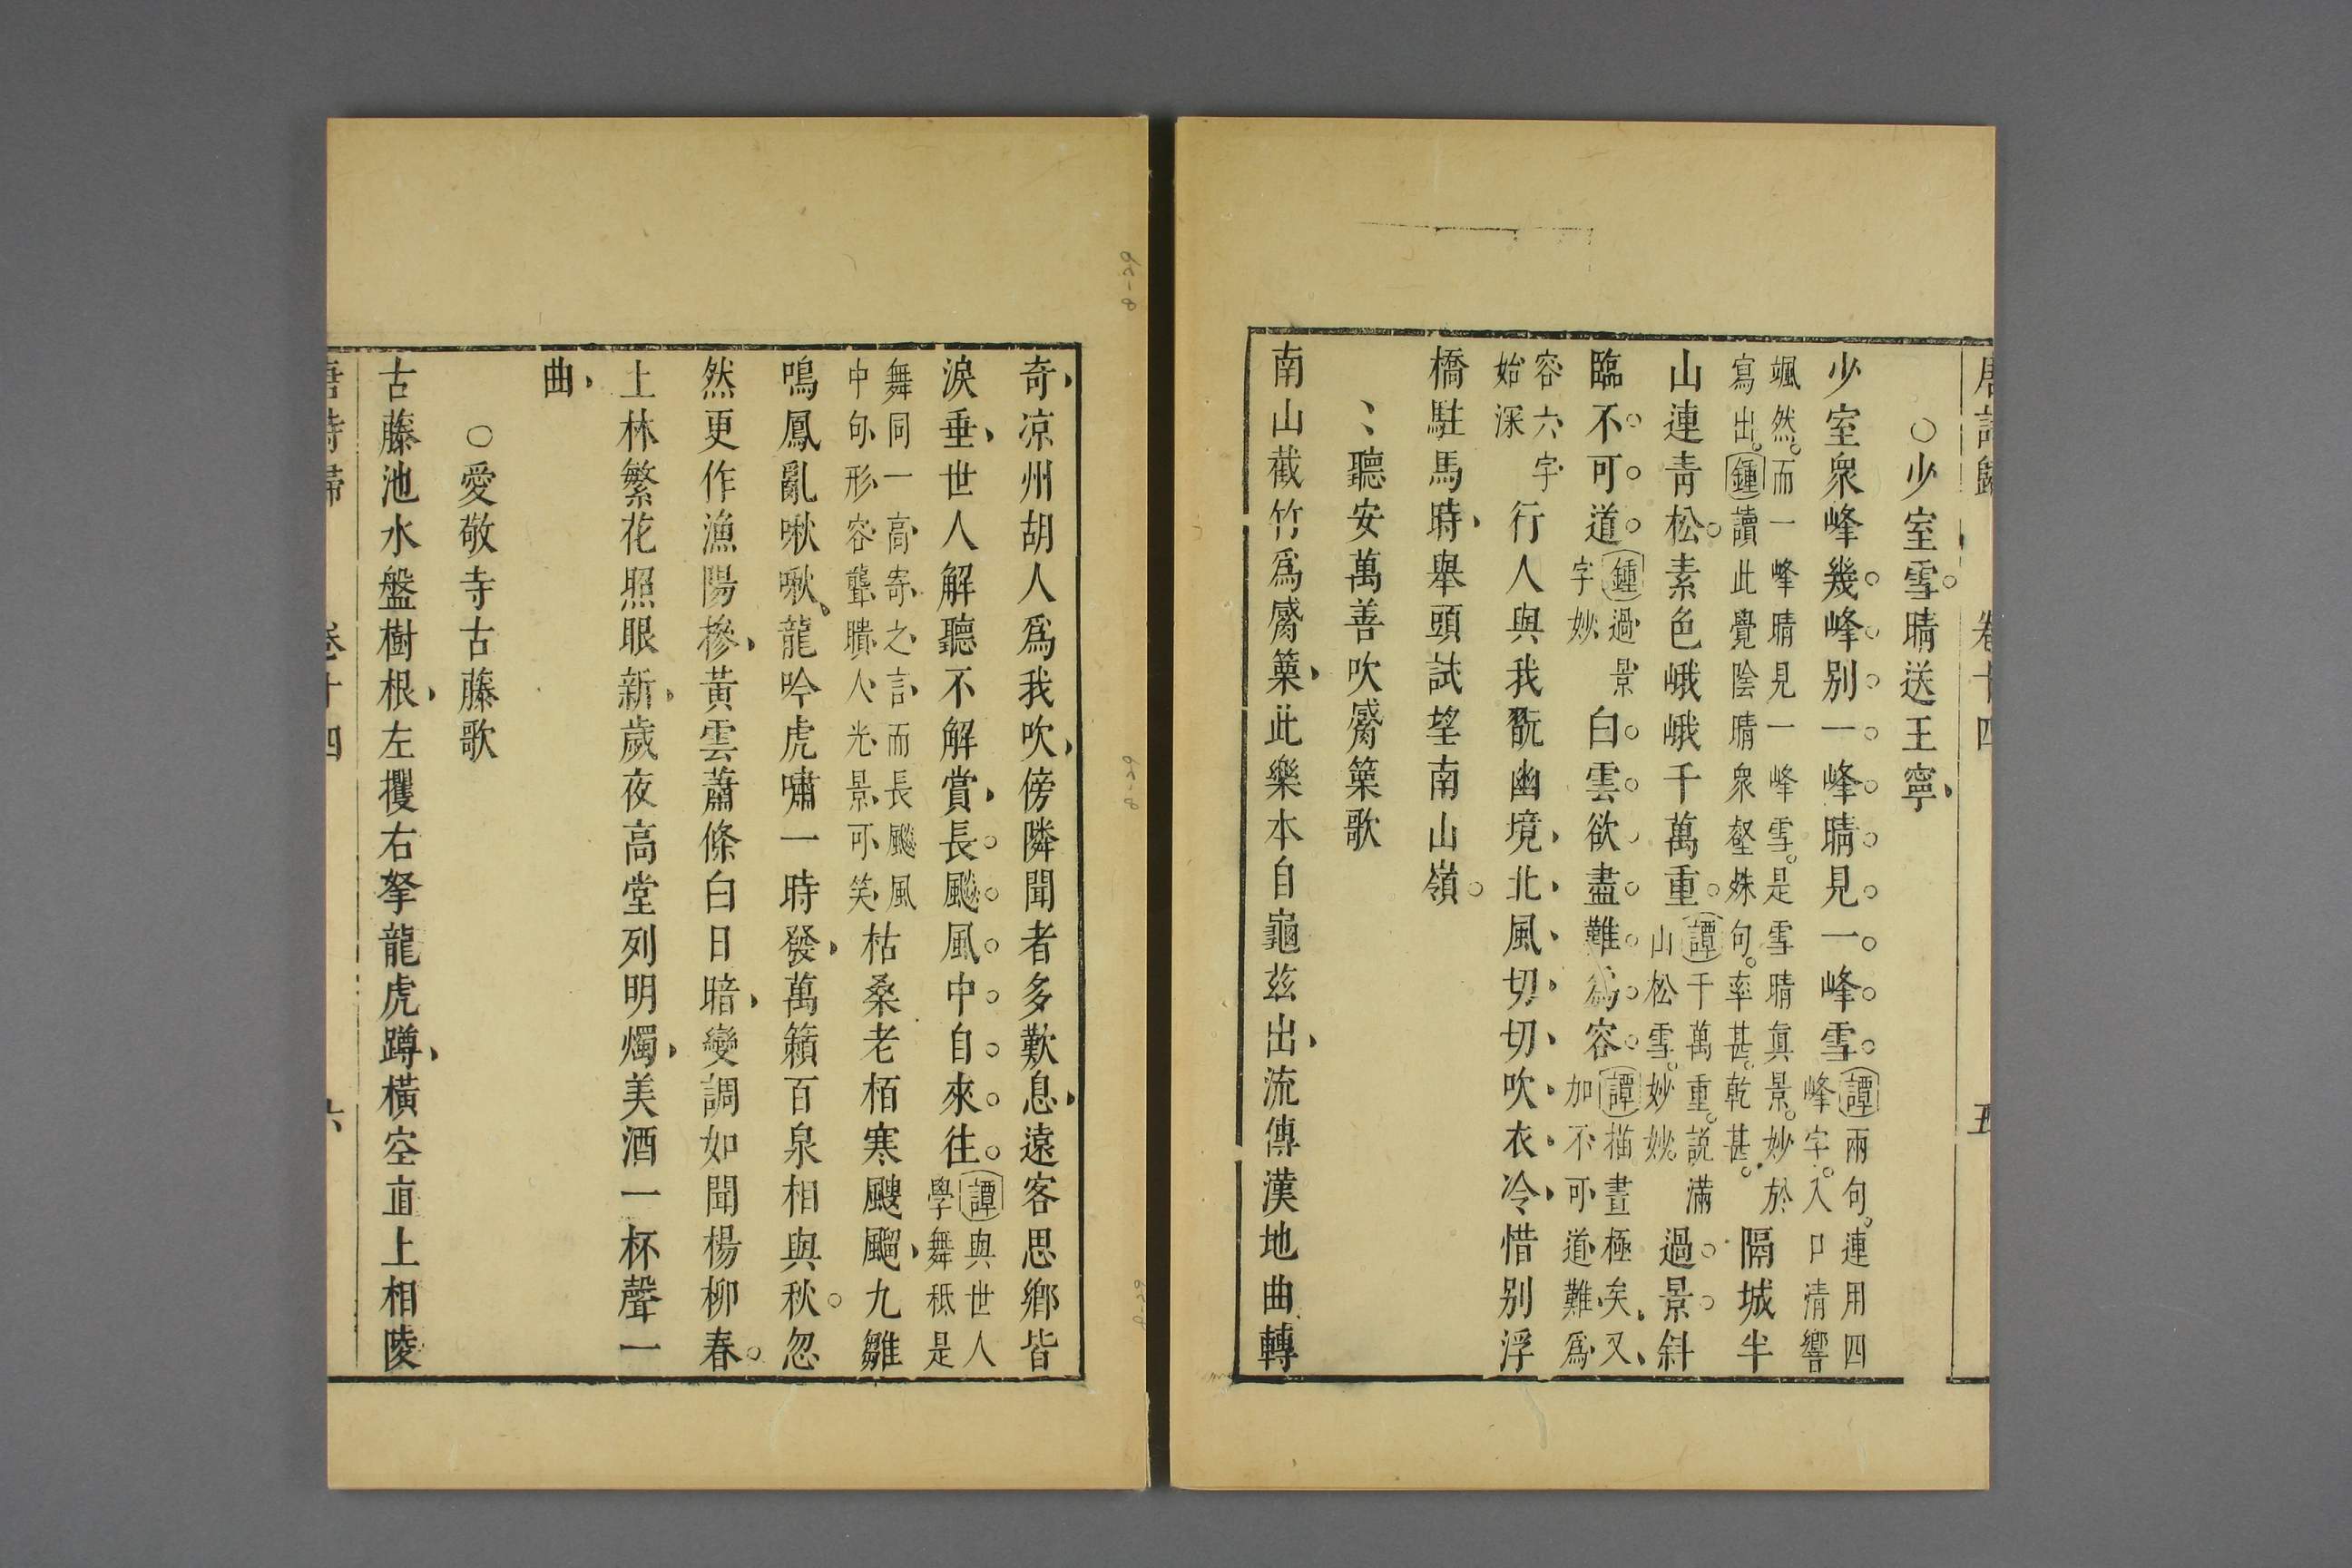 唐詩歸 卷十四 五
○少室雪晴送王寧
少室衆峰幾峰別一峰晴見一峰雪
譚兩句連用四
峰字入口清響
颯然而一峰晴見一峰雪是雪晴真景妙於
寫出鍾讀此覺陰晴衆壑殊句率甚乾甚
隔城半
山連青松素色峨峨千萬重
譚千萬重説滿
山松雪妙妙
過景斜
臨不可道
鍾過景
字妙
白雲欲盡難爲容
譚描畫極矣又
加不可道難爲
容六字
始深
行人與我翫幽境北風切切吹衣冷惜別浮
橋駐馬時舉頭試望南山嶺
聽安萬善吹觱篥歌
南山截竹爲觱篥此樂本自龜茲出流傳漢地曲轉
奇凉州胡人爲我吹傍隣聞者多歎息遠客思鄉皆
淚垂世人解聽不解賞長飈風中自來往
譚與世人
學舞秪是
舞同一高寄之言而長飈風
中句形容聾聵人光景可笑
枯桑老栢寒颼飀九雛
鳴鳳亂啾啾龍吟虎嘯一時發萬籟百泉相與秋忽
然更作漁陽摻黃雲蕭條白日暗變調如聞楊柳春
上林繁花照眼新歲夜高堂列明燭美酒一杯聲一
曲
○愛敬寺古藤歌
古藤池水盤樹根左攫右拏龍虎蹲橫空直上相陵
唐詩歸 卷十四 六